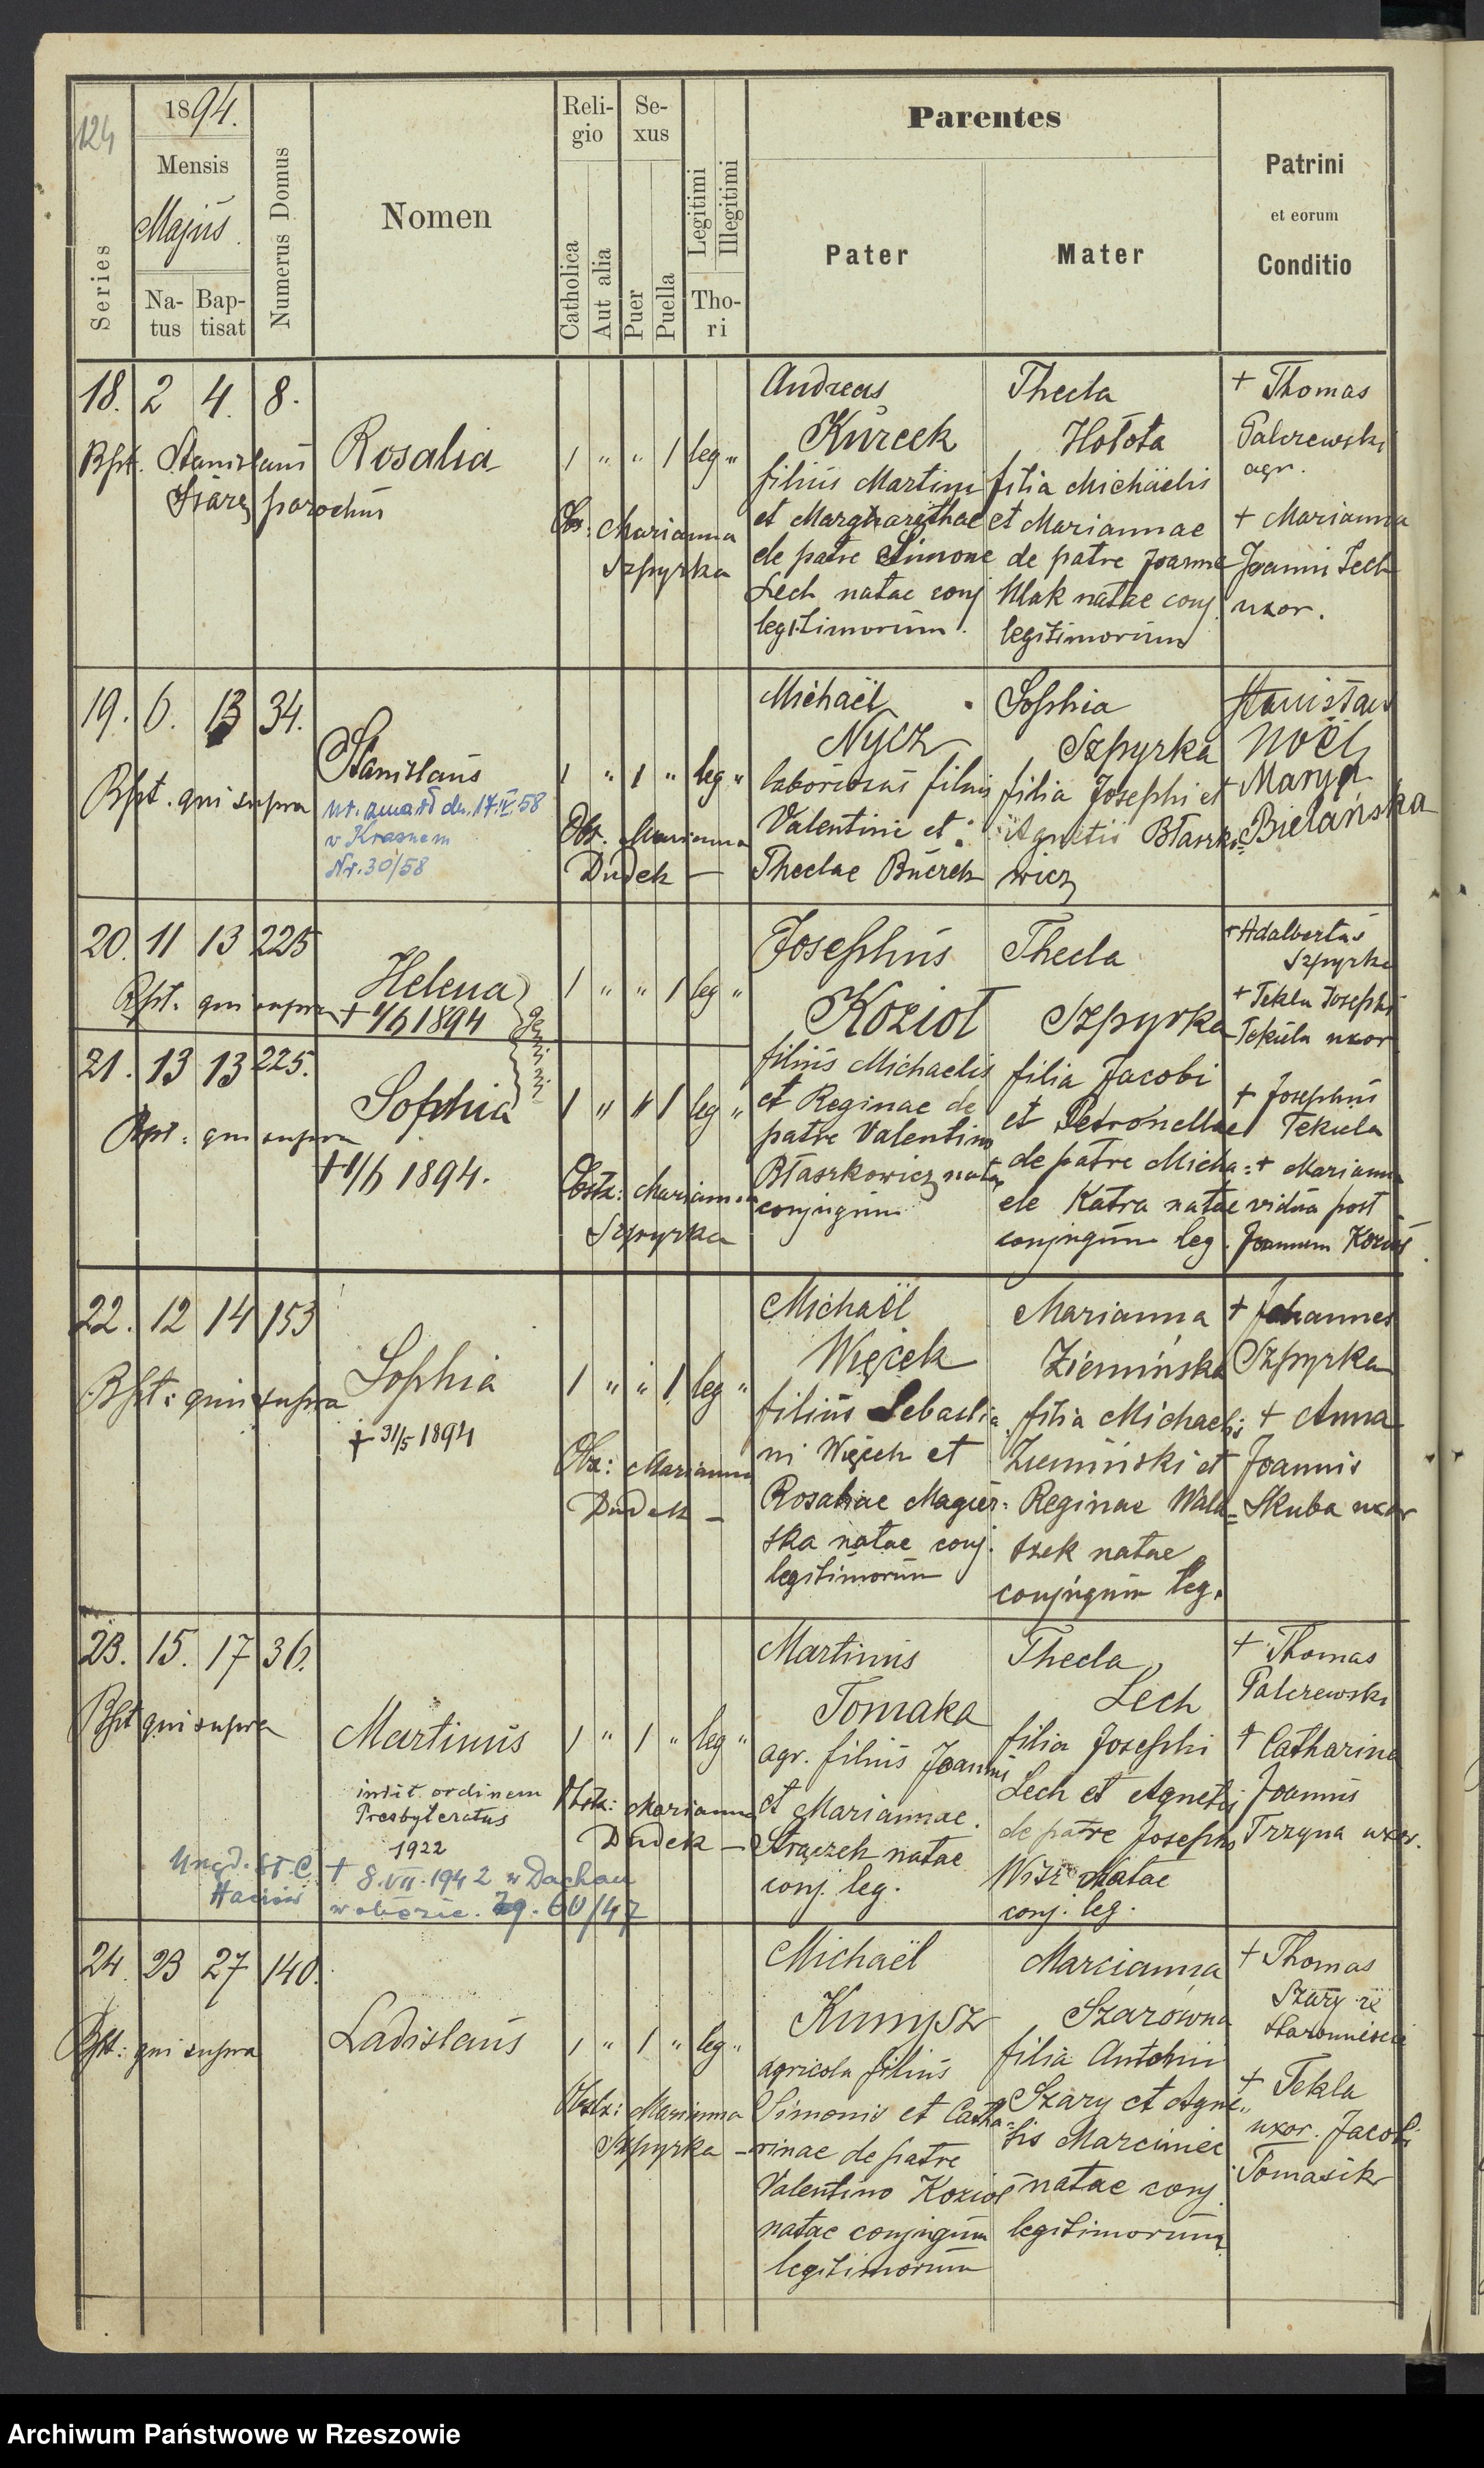 124
1894.
Mensis
Majus
Series
Natus
Baptisat
Numerus Domus
Nomen
Religio
Catholica
Aut alia
Sexus
Puer
Puella
Legitimi
Illegitimi
Thori
Parentes
Pater
Mater
Patrini
et eorum
Conditio
18. 2 4. 8.
Bpt. Stanislaus
parochus
Rosalia
1 " " 1 leg "
Obs: Marianna
Szpyrka
Andreas
Kurcek
filius Martini
et Margharithae
de patre Simone
Lech natae conj
legitimorum.
Thecla
Hołota
filia Michaëlis
et Mariannae
de patre Joanne
Kłak natae conj.
legitimorum
+ Thomas
Palczewski
agr.
+ Marianna
Joanni Lech
uxor.
19. 6. 13 34.
Bpt. qui supra
Stanislaus
17.IV.58
w Krasnem
Nr. 30/58
1 " 1 " leg "
Obs. Marianna
Dudek —
Michaël
Nycz
laboriosus filius
Valentini et
Theclae Buczek
Sophia
Szpyrka
filia Josephi et
Agnetis Błaszko=
wicz
Stanisław
Noël
Marya
Bielańska
20. 11 13 225
Bpt. qui supra
Helena
+ 1/6 1894
gemini
1 " " 1 leg "
Josephus
Kozioł
filius Michaelis
et Reginae de
patre Valentino
Błaszkowicz natae
conjugum
Thecla
Szpyrka
filia Jacobi
et Petronellae
de patre Micha=
ele Katra natae
conjugum leg.
+ Adalbertus
Szpyrka
+ Tekla Josephi
Tekiela uxor
21. 13 13 225.
Bpt: qui supra
Sophia
+ 1/6 1894.
1 " " 1 leg "
Obstx: Marianna
Szpyrka
+ Josephus
Tekiela
+ Marianna
vidua post
Joannem Kozioł
22. 12 14 153
Bpt: qui supra
Sophia
+ 31/5 1894
1 " " 1 leg "
Obs: Marianna
Dudek —
Michaël
Więcek
filius Sebastia
ni Więcek et
Rosaliae Magier=
ska natae conj.
legitimorum
Marianna
Ziemińska
filia Michaelis
Ziemiński et
Reginae Wala=
szek natae
conjugum leg.
+ Johannes
Szpyrka
+ Anna
Joannis
Skuba uxor
23. 15. 17 36.
Bpt qui supra
Martinus
ordinem
Presbyteratus
1922
+ 8.VII.1942 w Dachau
w obozie. 60/47
1 " 1 " leg "
Obstx: Marianna
Dudek —
Martinus
Tomaka
agr. filius Joannis
et Mariannae
Strączek natae
conj. leg.
Thecla
Lech
filia Josephi
Lech et Agnetis
de patre Josepho
natae
conj. leg.
+ Thomas
Palczewski
+ Catharina
Joannis
Trzyna uxor.
24. 23 27 140.
Bpt: qui supra
Ladislaus
1 " 1 " leg "
Obstx: Marianna
Szpyrka —
Michaël
Kumysz
agricola filius
Simonis et Catha=
rinae de patre
Valentino Kozioł
natae conjugum
legitimorum
Marcianna
Szarówna
filia Antonii
Szary et Agne=
tis Marciniec
natae conj.
legitimorum
+ Thomas
Szary
+ Tekla
uxor. Jacobi
Tomasik
Archiwum Państwowe w Rzeszowie